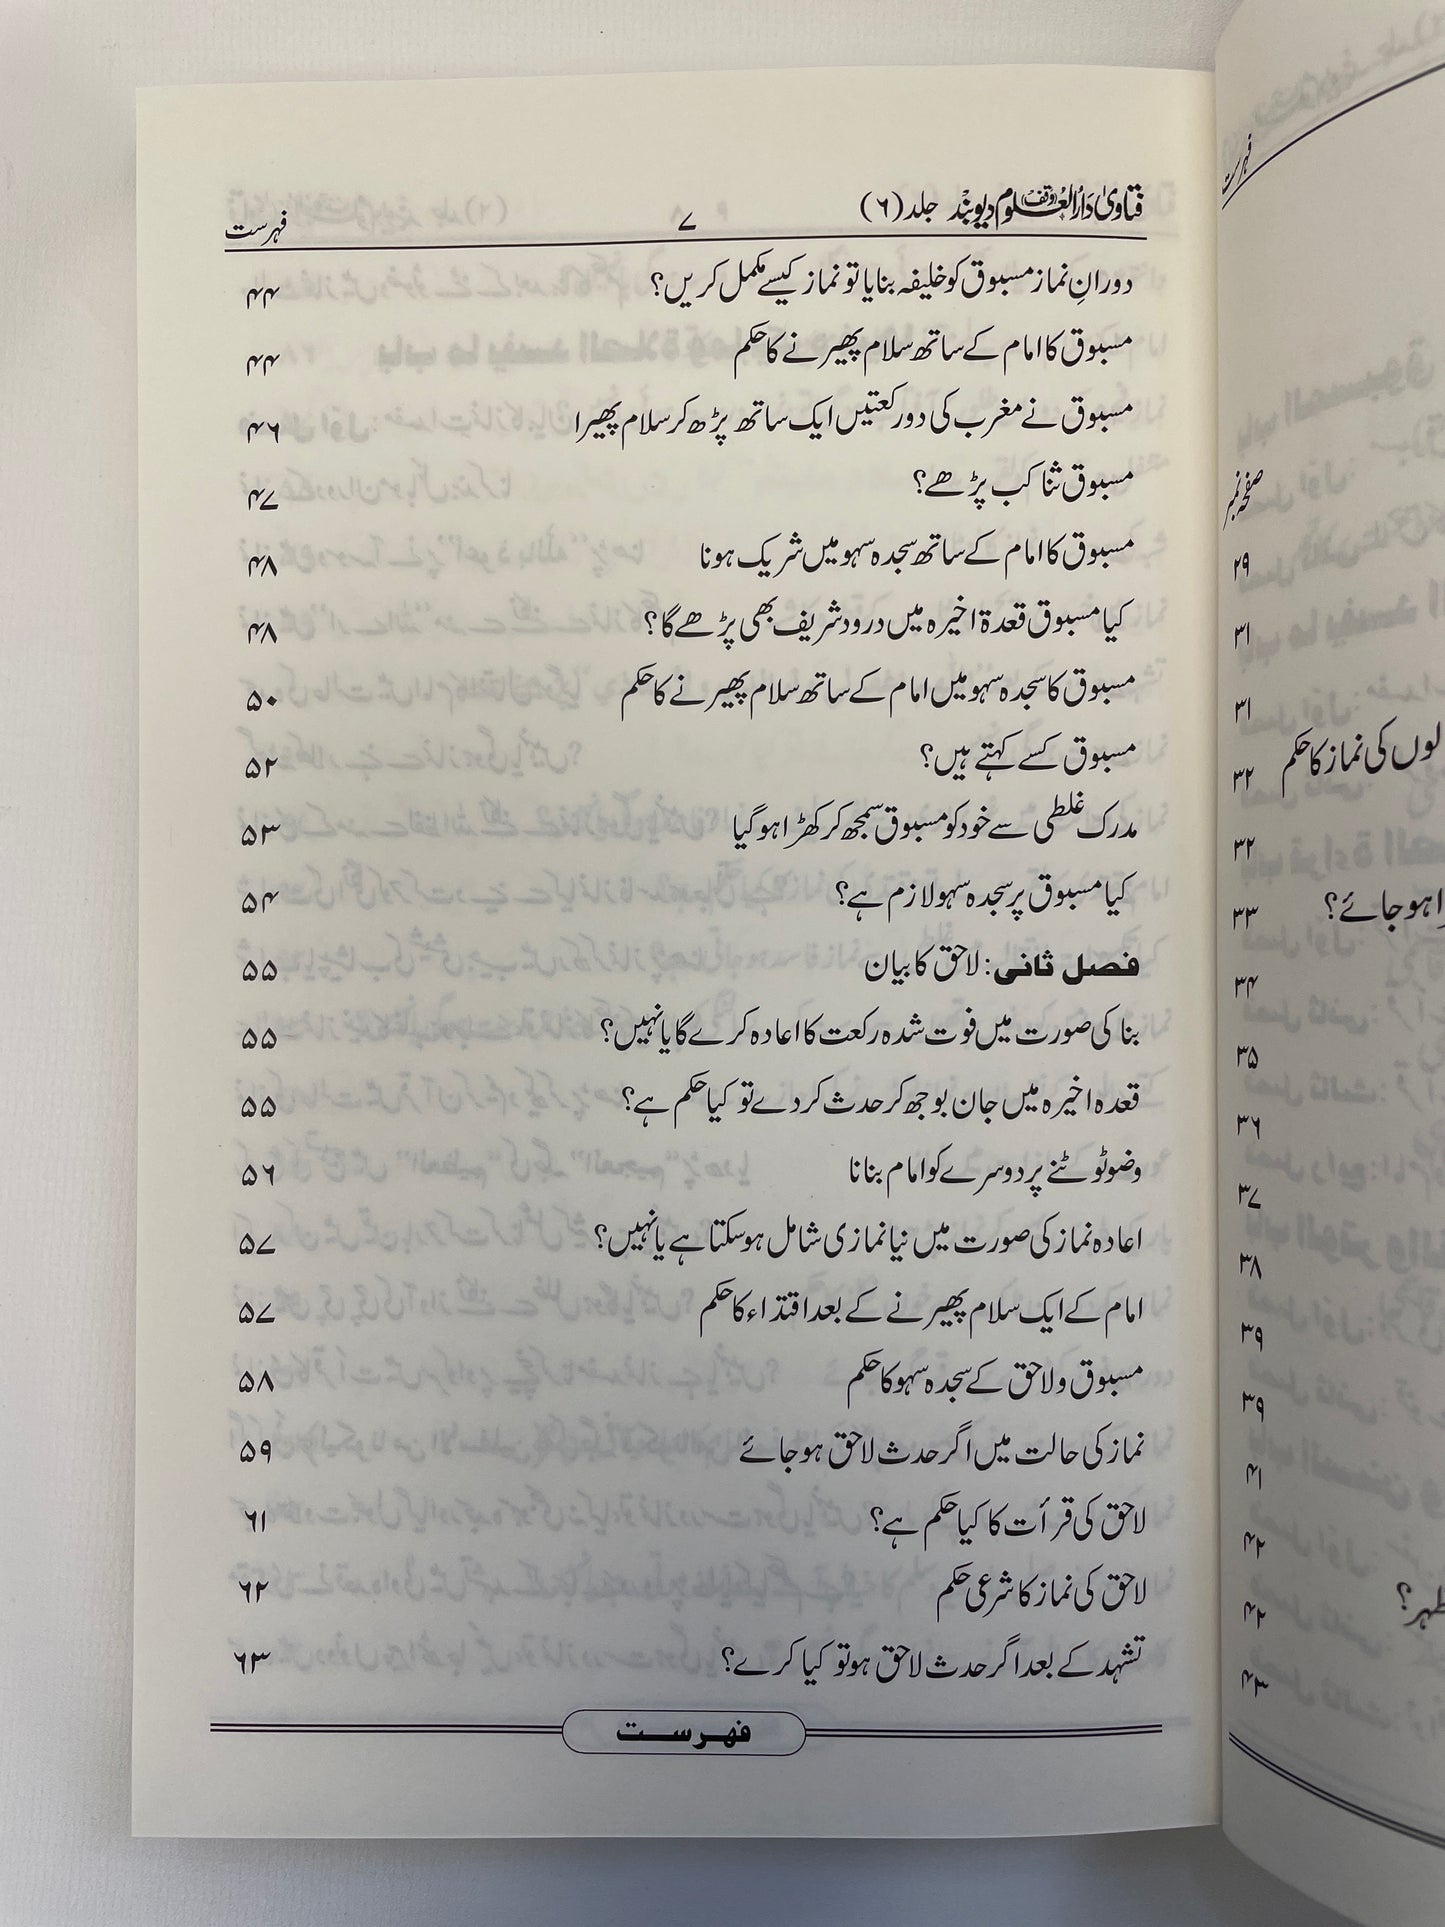 فتاویٰ دارالعلوم (وقف) دیوبند جلد (۶)
۷
فہرست
دورانِ نماز مسبوق کو خلیفہ بنایا تو نماز کیسے مکمل کریں؟ ۴۴
مسبوق کا امام کے ساتھ سلام پھیرنے کا حکم ۴۴
مسبوق نے مغرب کی دو رکعتیں ایک ساتھ پڑھ کر سلام پھیرا ۴۶
مسبوق ثنا کب پڑھے؟ ۴۷
مسبوق کا امام کے ساتھ سجدہ سہو میں شریک ہونا ۴۸
کیا مسبوق قعدۂ اخیرہ میں درود شریف بھی پڑھے گا؟ ۴۸
مسبوق کا سجدہ سہو میں امام کے ساتھ سلام پھیرنے کا حکم ۵۰
مسبوق کسے کہتے ہیں؟ ۵۲
مدرک غلطی سے خود کو مسبوق سمجھ کر کھڑا ہو گیا ۵۳
کیا مسبوق پر سجدہ سہو لازم ہے؟ ۵۴
فصل ثانی: لاحق کا بیان ۵۵
بنا کی صورت میں فوت شدہ رکعت کا اعادہ کرے گا یا نہیں؟ ۵۵
قعدہ اخیرہ میں جان بوجھ کر حدث کر دے تو کیا حکم ہے؟ ۵۵
وضو ٹوٹنے پر دوسرے کو امام بنانا ۵۶
اعادہ نماز کی صورت میں نیا نمازی شامل ہو سکتا ہے یا نہیں؟ ۵۷
امام کے ایک سلام پھیرنے کے بعد اقتداء کا حکم ۵۷
مسبوق و لاحق کے سجدہ سہو کا حکم ۵۸
نماز کی حالت میں اگر حدث لاحق ہو جائے ۵۹
لاحق کی قرأت کا کیا حکم ہے؟ ۶۱
لاحق کی نماز کا شرعی حکم ۶۲
تشہد کے بعد اگر حدث لاحق ہو تو کیا کرے؟ ۶۳
فہرست
فہرست
صفحہ نمبر
۲۹
۳۱
۳۱
لوں کی نماز کا حکم ۳۲
۳۲
ا ہو جائے؟ ۳۳
۳۴
۳۵
۳۶
۳۷
۳۸
۳۹
۳۹
۴۱
۴۲
۴۲
۴۳